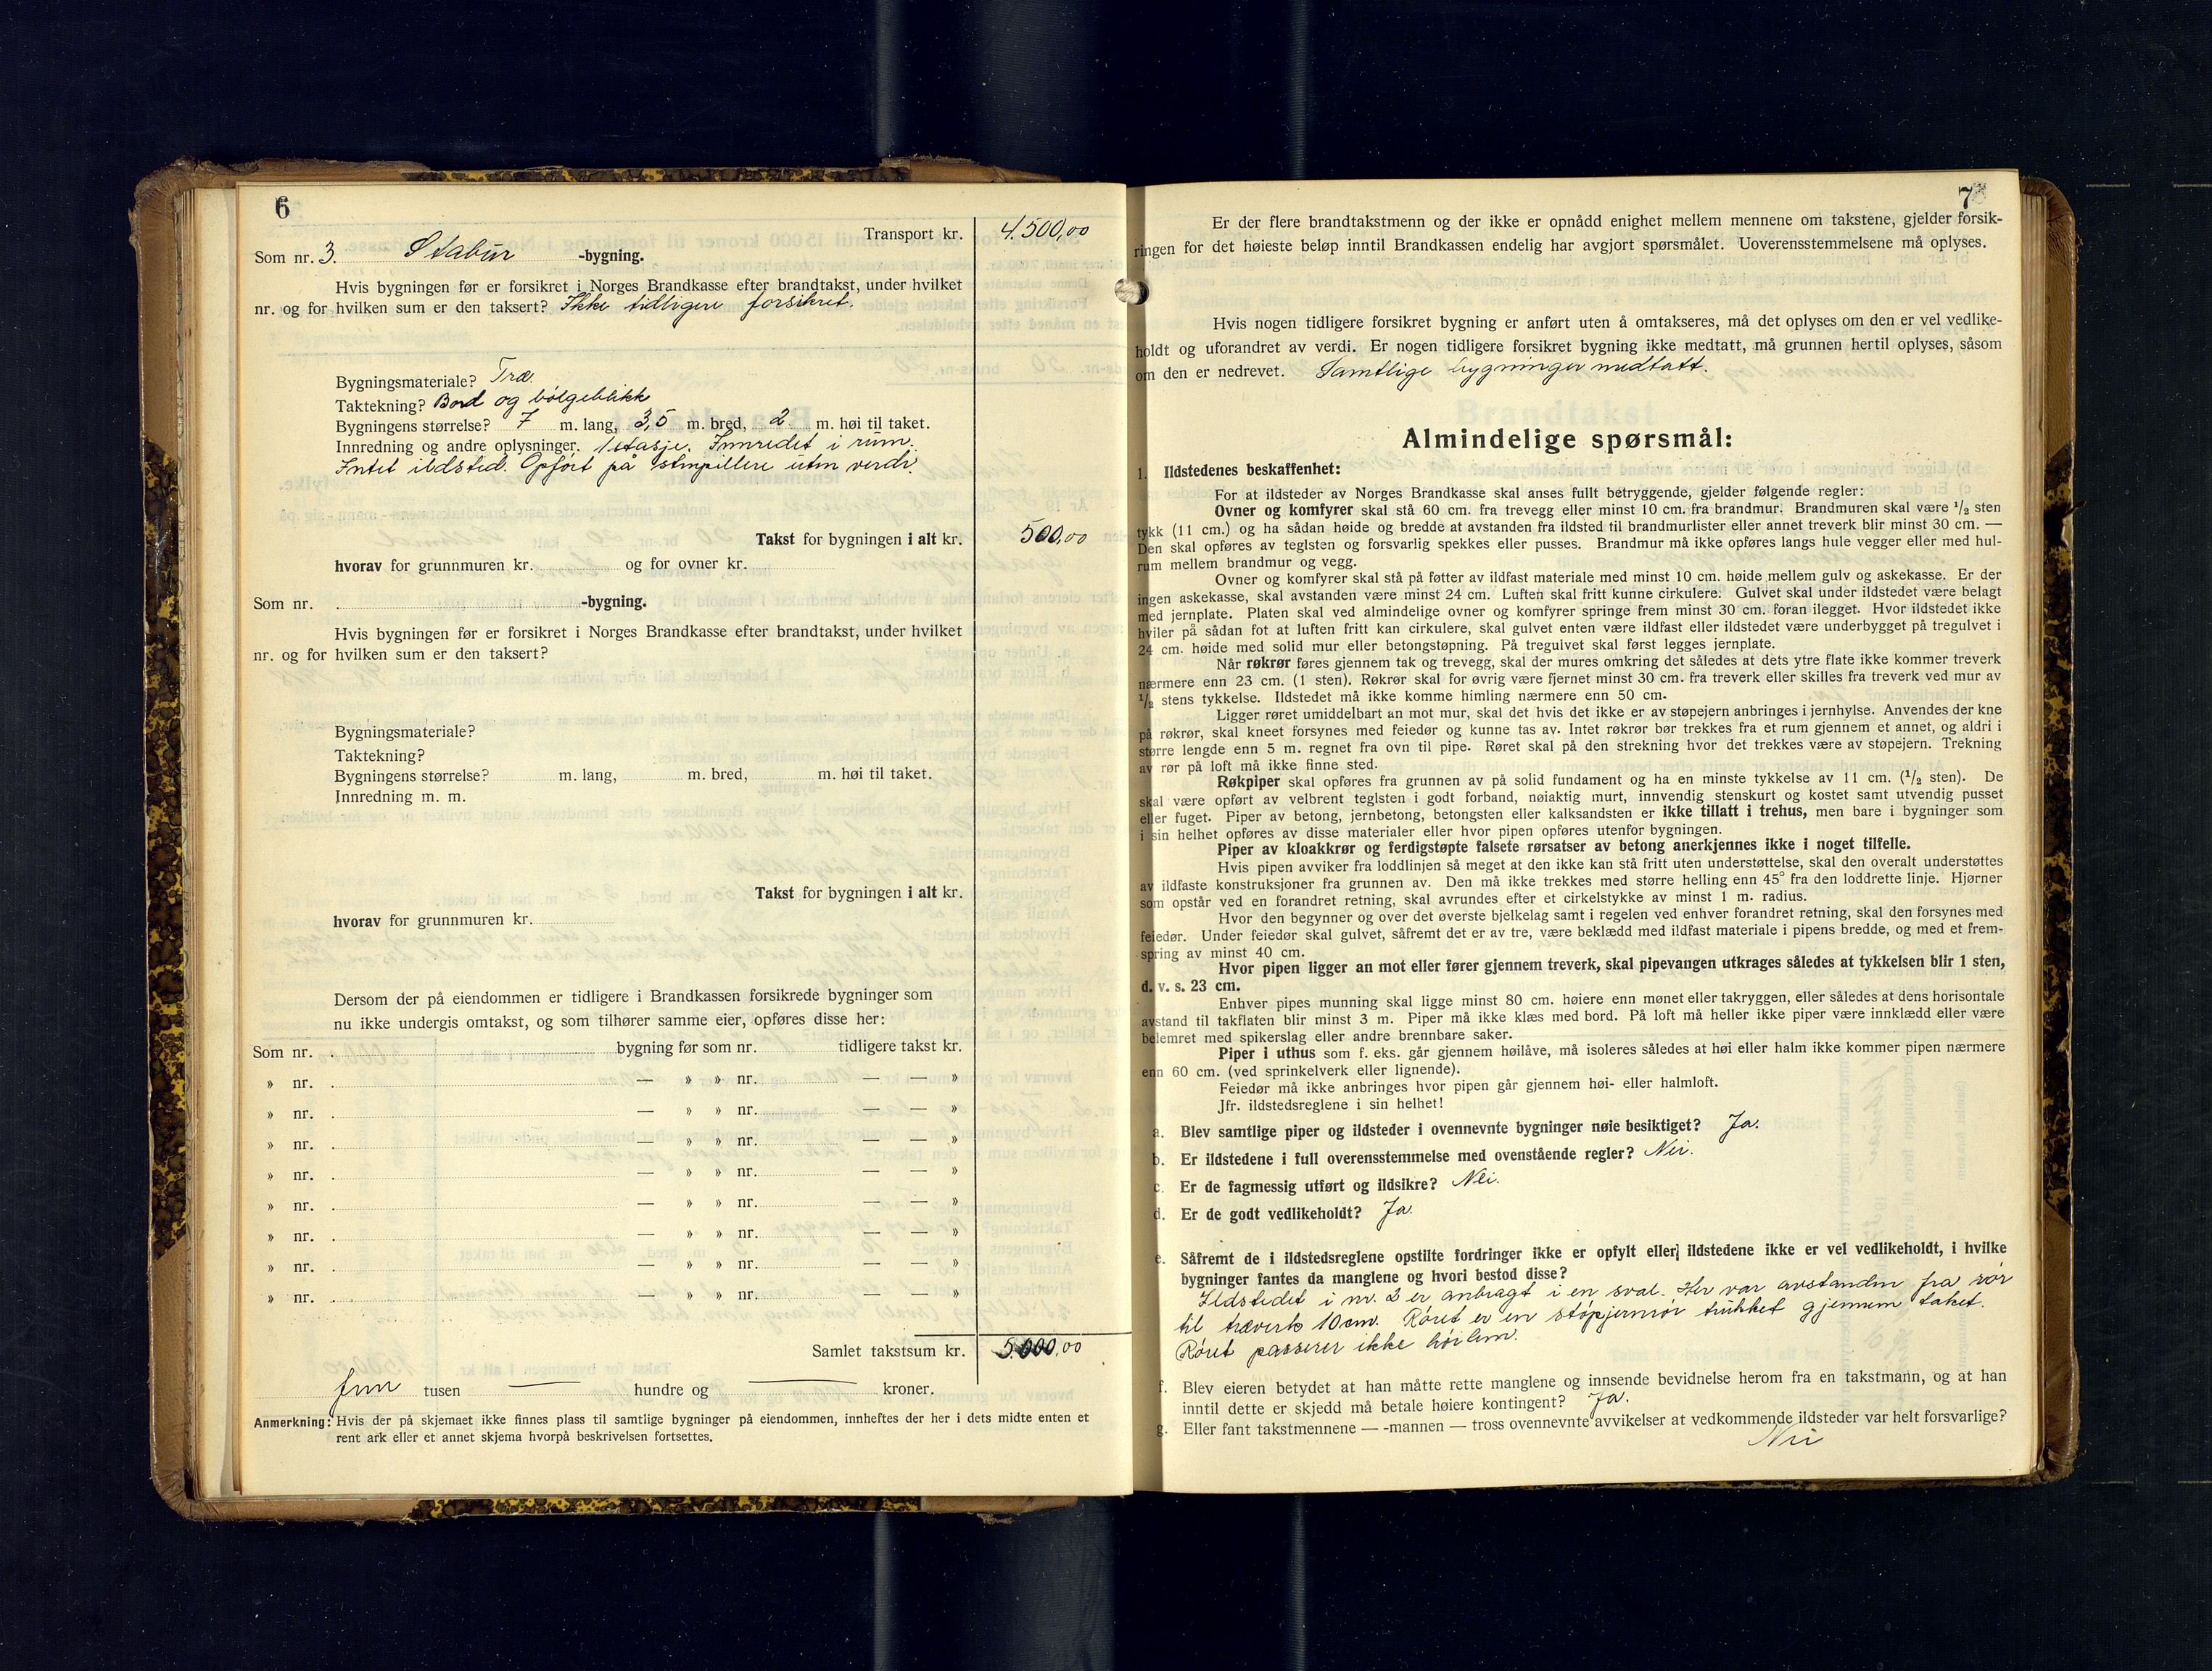 6
Transport kr. 4500,00
Som nr. 3. Stabur -bygning.
Hvis bygningen før er forsikret i Norges Brandkasse efter brandtakst, under hvilket
nr. og for hvilken sum er den taksert? Ikke tidligere forsikret.
Bygningsmateriale? Træ.
Taktekning? Bord og bølgeblikk
Bygningens størrelse? 7 m. lang, 3,5 m. bred, 2 m. høi til taket.
Innredning og andre oplysninger. 1 etasje. Innredet i rum.
Intet ildsted. Opført på stenpillere uten verdi.
Takst for bygningen i alt kr. 500,00
hvorav for grunnmuren kr. og for ovner kr.
Som nr. . -bygning.
Hvis bygningen før er forsikret i Norges Brandkasse efter brandtakst, under hvilket
nr. og for hvilken sum er den taksert?
Bygningsmateriale?
Taktekning?
Bygningens størrelse? m. lang, m. bred, m. høi til taket.
Innredning m. m.
Takst for bygningen i alt kr.
hvorav for grunnmuren kr.
Dersom der på eiendommen er tidligere i Brandkassen forsikrede bygninger som
nu ikke undergis omtakst, og som tilhører samme eier, opføres disse her:
Som nr. . bygning før som nr. tidligere takst kr.
» nr. . — » » nr. — — »
» nr. . — » » nr. — — »
» nr. . — » » nr. — — »
» nr. . — » » nr. — — »
» nr. . — » » nr. — — »
» nr. . — » » nr. — — »
» nr. . — » » nr. — — »
» nr. . — » » nr. — — »
Samlet takstsum kr. 5000,00
fem tusen — hundre og — kroner.
Anmerkning: Hvis der på skjemaet ikke finnes plass til samtlige bygninger på eiendommen, innheftes der her i dets midte enten et
rent ark eller et annet skjema hvorpå beskrivelsen fortsettes.
7
Er der flere brandtakstmenn og der ikke er opnådd enighet mellem mennene om takstene, gjelder forsik-
ringen for det høieste beløp inntil Brandkassen endelig har avgjort spørsmålet. Uoverensstemmelsene må oplyses.
Hvis nogen tidligere forsikret bygning er anført uten å omtakseres, må det oplyses om den er vel vedlike-
holdt og uforandret av verdi. Er nogen tidligere forsikret bygning ikke medtatt, må grunnen hertil oplyses, såsom
om den er nedrevet. Samtlige bygninger medtatt.
Almindelige spørsmål:
1. Ildstedenes beskaffenhet:
For at ildsteder av Norges Brandkasse skal anses fullt betryggende, gjelder følgende regler:
Ovner og komfyrer skal stå 60 cm. fra trevegg eller minst 10 cm. fra brandmur. Brandmuren skal være 1/2 sten
tykk (11 cm.) og ha sådan høide og bredde at avstanden fra ildsted til brandmurlister eller annet treverk blir minst 30 cm. —
Den skal opføres av teglsten og forsvarlig spekkes eller pusses. Brandmur må ikke opføres langs hule vegger eller med hul-
rum mellem brandmur og vegg.
Ovner og komfyrer skal stå på føtter av ildfast materiale med minst 10 cm. høide mellem gulv og askekasse. Er der
ingen askekasse, skal avstanden være minst 24 cm. Luften skal fritt kunne cirkulere. Gulvet skal under ildstedet være belagt
med jernplate. Platen skal ved almindelige ovner og komfyrer springe frem minst 30 cm. foran ilegget. Hvor ildstedet ikke
hviler på sådan fot at luften fritt kan cirkulere, skal gulvet enten være ildfast eller ildstedet være underbygget på tregulvet i
24 cm. høide med solid mur eller betongstøpning. På tregulvet skal først legges jernplate.
Når røkrør føres gjennem tak og trevegg, skal der mures omkring det således at dets ytre flate ikke kommer treverk
nærmere enn 23 cm. (1 sten). Røkrør skal for øvrig være fjernet minst 30 cm. fra treverk eller skilles fra treverk ved mur av
1/2 stens tykkelse. Ildstedet må ikke komme himling nærmere enn 50 cm.
Ligger røret umiddelbart an mot mur, skal det hvis det ikke er av støpejern anbringes i jernhylse. Anvendes der kne
på røkrør, skal kneet forsynes med feiedør og kunne tas av. Intet røkrør bør trekkes fra et rum gjennem et annet, og aldri i
større lengde enn 5 m. regnet fra ovn til pipe. Røret skal på den strekning hvor det trekkes være av støpejern. Trekning
av rør på loft må ikke finne sted.
Røkpiper skal opføres fra grunnen av på solid fundament og ha en minste tykkelse av 11 cm. (1/2 sten). De
skal være opført av velbrent teglsten i godt forband, nøiaktig murt, innvendig stenskurt og kostet samt utvendig pusset
eller fuget. Piper av betong, jernbetong, betongsten eller kalksandsten er ikke tillatt i trehus, men bare i bygninger som
i sin helhet opføres av disse materialer eller hvor pipen opføres utenfor bygningen.
Piper av kloakkrør og ferdigstøpte falsete rørsatser av betong anerkjennes ikke i noget tilfelle.
Hvis pipen avviker fra loddlinjen så meget at den ikke kan stå fritt uten understøttelse, skal den overalt understøttes
av ildfaste konstruksjoner fra grunnen av. Den må ikke trekkes med større helling enn 45° fra den loddrette linje. Hjørner
som opstår ved en forandret retning, skal avrundes efter et cirkelstykke av minst 1 m. radius.
Hvor den begynner og over det øverste bjelkelag samt i regelen ved enhver forandret retning, skal den forsynes med
feiedør. Under feiedør skal gulvet, såfremt det er av tre, være beklædd med ildfast materiale i pipens bredde, og med et frem-
spring av minst 40 cm.
Hvor pipen ligger an mot eller fører gjennem treverk, skal pipevangen utkrages således at tykkelsen blir 1 sten,
d. v. s. 23 cm.
Enhver pipes munning skal ligge minst 80 cm. høiere enn mønet eller takryggen, eller således at dens horisontale
avstand til takflaten blir minst 3 m. Piper må ikke klæs med bord. På loft må heller ikke piper være innklædd eller være
belemret med spikerslag eller andre brennbare saker.
Piper i uthus som f. eks. går gjennem høilåve, må isoleres således at høi eller halm ikke kommer pipen nærmere
enn 60 cm. (ved sprinkelverk eller lignende).
Feiedør må ikke anbringes hvor pipen går gjennem høi- eller halmloft.
Jfr. ildstedsreglene i sin helhet!
a. Blev samtlige piper og ildsteder i ovennevnte bygninger nøie besiktiget? Ja.
b. Er ildstedene i full overensstemmelse med ovenstående regler? Nei.
c. Er de fagmessig utført og ildsikre? Nei.
d. Er de godt vedlikeholdt? Ja.
e. Såfremt de i ildstedsreglene opstilte fordringer ikke er opfylt eller ildstedene ikke er vel vedlikeholdt, i hvilke
bygninger fantes da manglene og hvori bestod disse?
Ildstedet i nr. 2 er anbragt i en sval. Her var avstanden fra rør
til træverk 10 cm. Røret er en støpjernrør trukket gjennem taket.
Røret passerer ikke høilem.
f. Blev eieren betydet at han måtte rette manglene og innsende bevidnelse herom fra en takstmann, og at han
inntil dette er skjedd må betale høiere kontingent? Ja.
g. Eller fant takstmennene — -mannen — tross ovennevnte avvikelser at vedkommende ildsteder var helt forsvarlige?
Nei